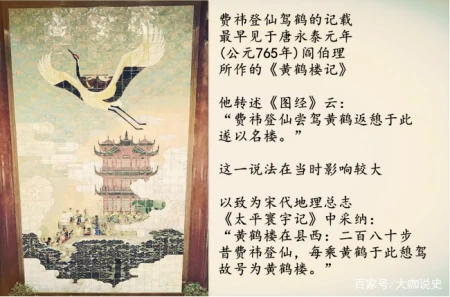 费祎登仙驾鹤的记载
最早见于唐永泰元年
(公元765年)阎伯理
所作的《黄鹤楼记》
他转述《图经》云：
“费祎登仙尝驾黄鹤返憩于此
遂以名楼。”
这一说法在当时影响较大
以致为宋代地理总志
《太平寰宇记》中采纳：
“黄鹤楼在县西：二百八十步
昔费祎登仙，每乘黄鹤于此憩驾
故号为黄鹤楼。”
百家号/大咖说史